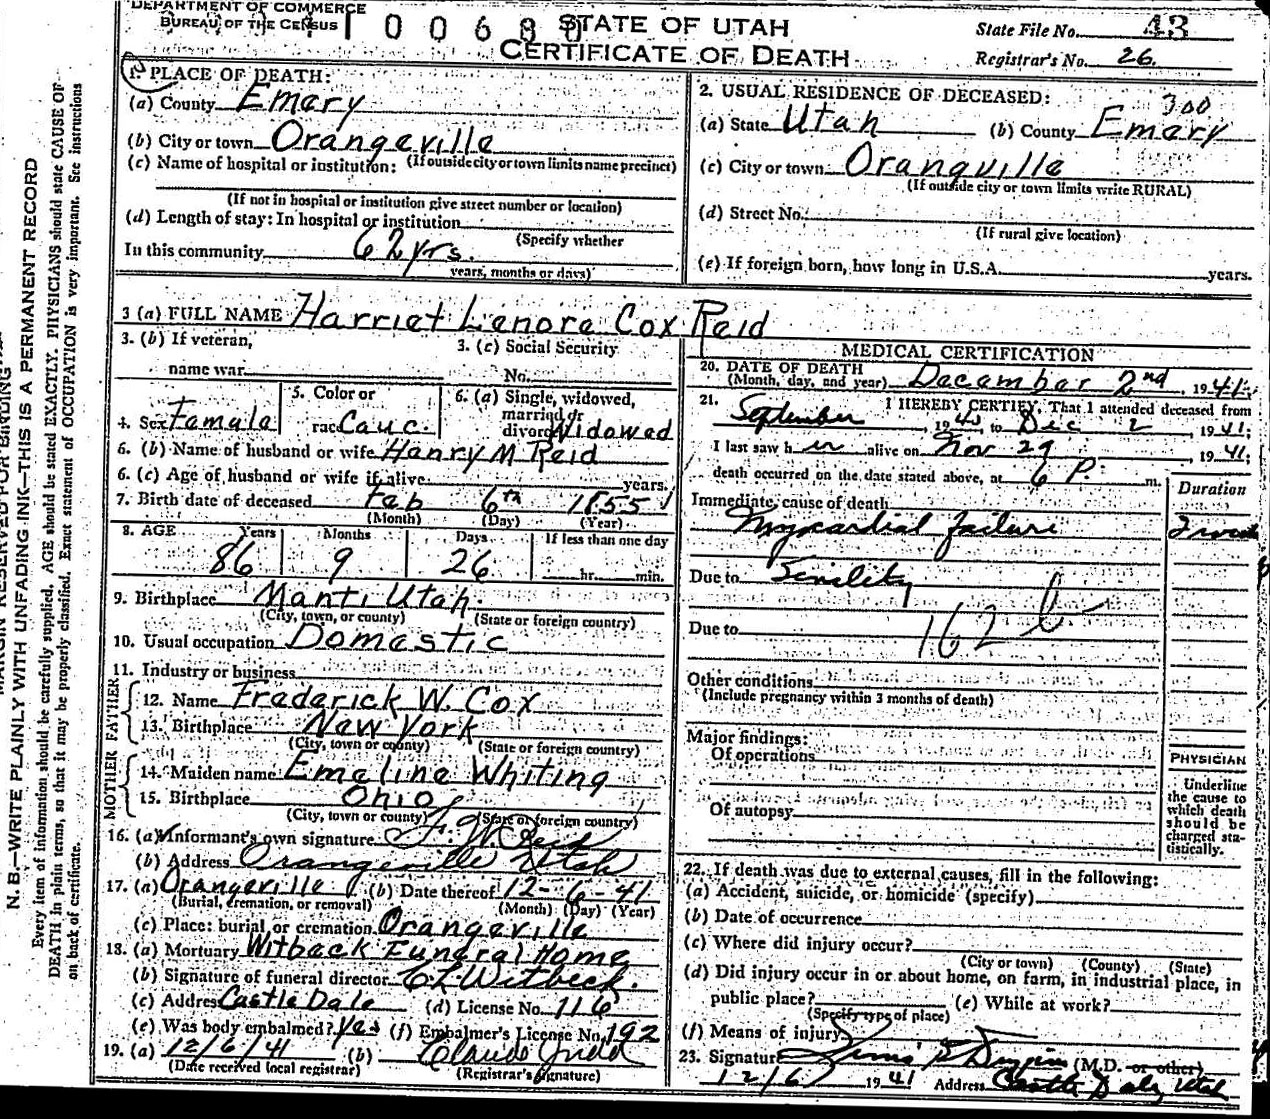 DEPARTMENT OF COMMERCE
BUREAU OF THE CENSUS
1 0 0 6 8 0
STATE OF UTAH
CERTIFICATE OF DEATH
State File No. 43
Registrar's No. 26.
1. PLACE OF DEATH:
(a) County Emery
(b) City or town Orangeville
(c) Name of hospital or institution: (If outside city or town limits name precinct)
(If not in hospital or institution give street number or location)
(d) Length of stay: In hospital or institution
(Specify whether
In this community 62 yrs.
years, months or days)
2. USUAL RESIDENCE OF DECEASED:
300
(a) State Utah (b) County Emery
(c) City or town Orangville
(If outside city or town limits write RURAL)
(d) Street No.
(If rural give location)
(e) If foreign born, how long in U.S.A. years.
3 (a) FULL NAME Harriet Lenore Cox Reid
3. (b) If veteran,
name war
3. (c) Social Security
No.
4. Sex Female
5. Color or
race Cauc.
6. (a) Single, widowed,
married or
divorced Widowed
6. (b) Name of husband or wife Henry M Reid
6. (c) Age of husband or wife if alive years.
7. Birth date of deceased Feb 6th 1855
(Month) (Day) (Year)
8. AGE Years Months Days If less than one day
86 9 26 hr. min.
9. Birthplace Manti Utah.
(City, town, or county) (State or foreign country)
10. Usual occupation Domestic
11. Industry or business
FATHER
12. Name Frederick W. Cox
13. Birthplace New York
(City, town or county) (State or foreign country)
MOTHER
14. Maiden name Emeline Whiting
15. Birthplace Ohio
(City, town or county) (State or foreign country)
16. (a) Informant's own signature F. W. Reid
(b) Address Orangeville Utah
17. (a) Orangeville (b) Date thereof 12-6-41
(Burial, cremation, or removal) (Month) (Day) (Year)
(c) Place: burial or cremation Orangeville
18. (a) Mortuary Witbeck Funeral Home
(b) Signature of funeral director CL Witbeck.
(c) Address Castle Dale (d) License No. 116
(e) Was body embalmed? Yes (f) Embalmer's License No. 192
19. (a) 12/6/41 (b) Claude Judd
(Date received local registrar) (Registrar's signature)
MEDICAL CERTIFICATION
20. DATE OF DEATH
(Month, day, and year) December 2nd 1941.
21. I HEREBY CERTIFY, That I attended deceased from
September, 1940, to Dec 2 1941;
I last saw her alive on Nov 29 1941;
death occurred on the date stated above, at 6 P. m.
Duration
Immediate cause of death
Myocardial failure 2 weeks
Due to Senility
162 b
Due to
Other conditions
(Include pregnancy within 3 months of death)
Major findings:
Of operations
Of autopsy
PHYSICIAN
Underline
the cause to
which death
should be
charged sta-
tistically.
22. If death was due to external causes, fill in the following:
(a) Accident, suicide, or homicide (specify)
(b) Date of occurrence
(c) Where did injury occur?
(City or town) (County) (State)
(d) Did injury occur in or about home, on farm, in industrial place, in
public place? (e) While at work?
(Specify type of place)
(f) Means of injury
23. Signature (M.D. or other)
12/6/ 1941 Address Castle Dale, Utah
N.B.—WRITE PLAINLY WITH UNFADING INK—THIS IS A PERMANENT RECORD
Every item of information should be carefully supplied. AGE should be stated EXACTLY. PHYSICIANS should state CAUSE OF
DEATH in plain terms, so that it may be properly classified. Exact statement of OCCUPATION is very important. See instructions
on back of certificate.